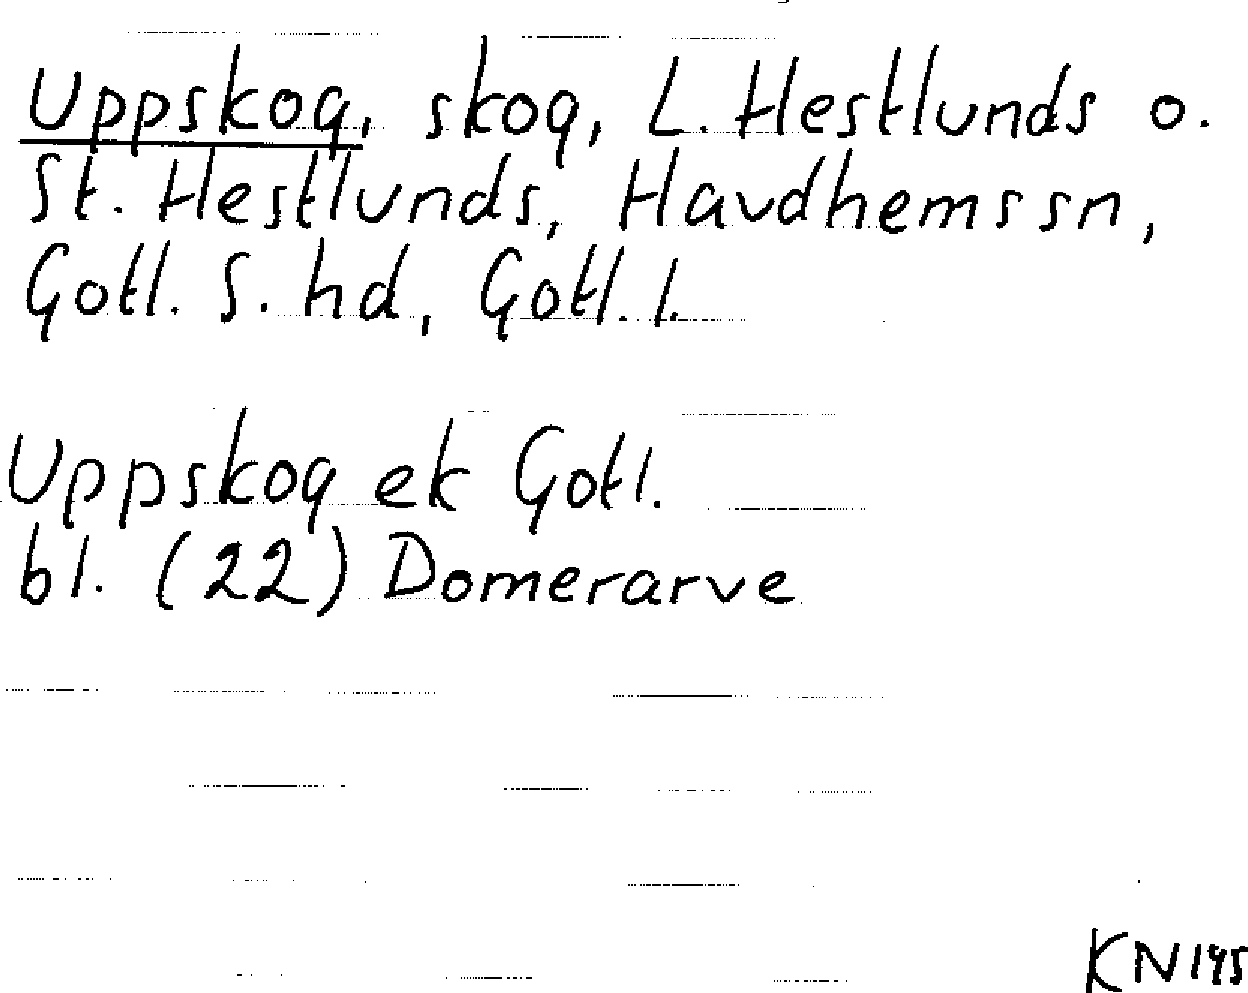 Uppskog, skog, L. Hestlunds o.
St. Hestlunds, Havdhems sn,
Gotl. S. hd, Gotl. l.
Uppskog ek Gotl.
bl. (22) Domerarve
KN